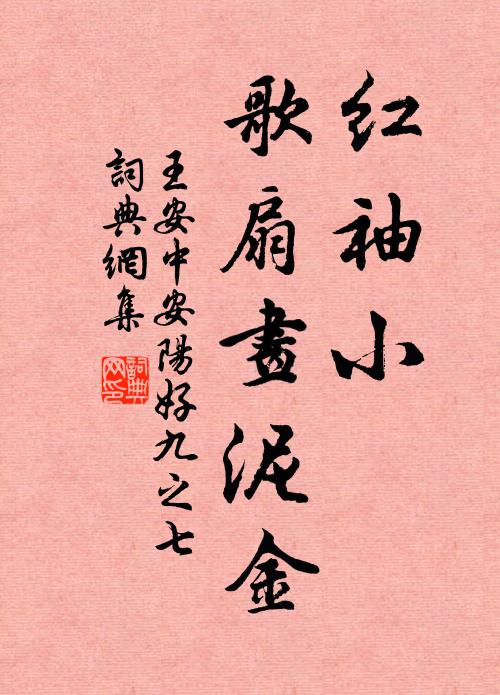 红袖小
歌扇畫泥金
王安中安陽好九之七
詞典網集
詞典
网印